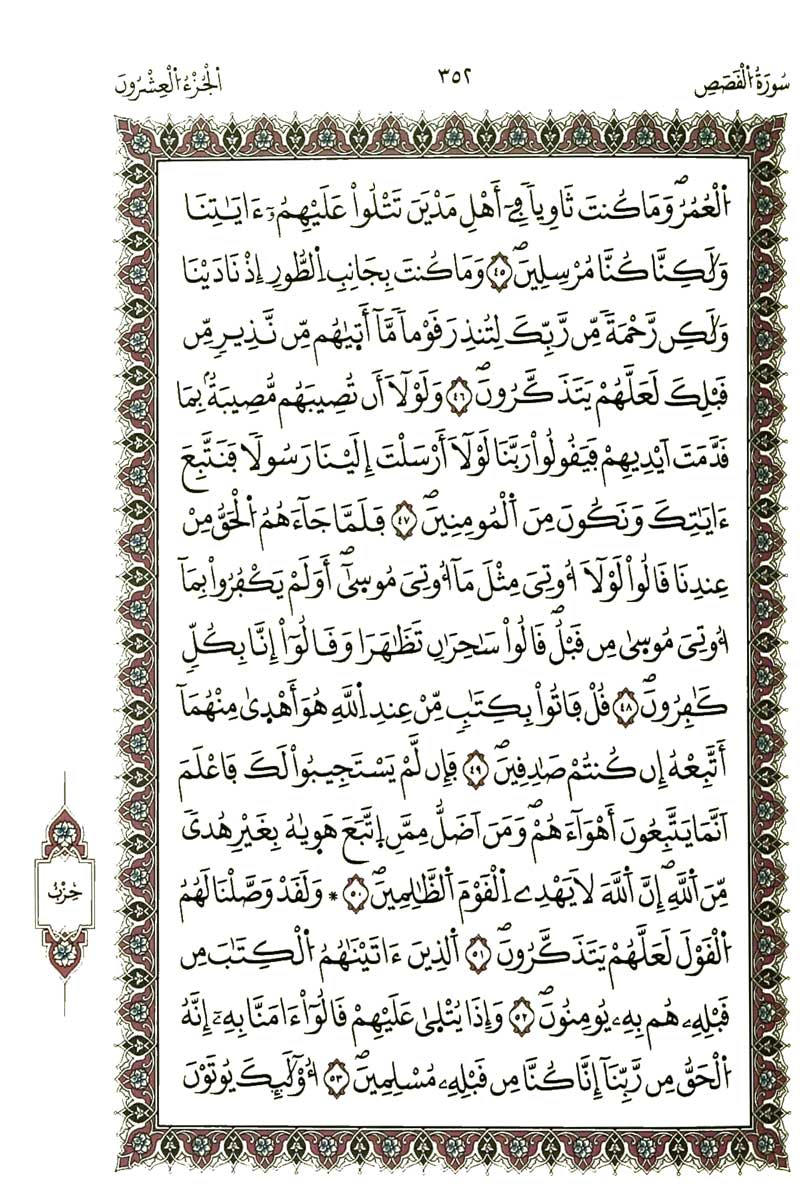 سُورَةُ الْقَصَصِ ٣٥٢ الْجُزْءُ الْعِشْرُونَ
اُ۬لْعُمُرُۖ وَمَا كُنتَ ثَاوِياٗ فِےٓ أَهْلِ مَدْيَنَ تَتْلُواْ عَلَيْهِمُۥٓ ءَايَٰتِنَا
وَلَٰكِنَّا كُنَّا مُرْسِلِينَۖ ٤٥ وَمَا كُنتَ بِجَانِبِ اِ۬لطُّورِ إِذْ نَادَيْنَا
وَلَٰكِن رَّحْمَةٗ مِّن رَّبِّكَ لِتُنذِرَ قَوْماٗ مَّآ أَتٜيٰهُم مِّن نَّذِيرٖ مِّن
قَبْلِكَ لَعَلَّهُمْ يَتَذَكَّرُونَۖ ٤٦ وَلَوْلَآ أَن تُصِيبَهُم مُّصِيبَةُۢ بِمَا
قَدَّمَتَ اَيْدِيهِمْ فَيَقُولُواْ رَبَّنَا لَوْلَآ أَرْسَلْتَ إِلَيْنَا رَسُولاٗ فَنَتَّبِعَ
ءَايَٰتِكَ وَنَكُونَ مِنَ اَ۬لْمُومِنِينَۖ ٤٧ فَلَمَّا جَآءَهُمُ اُ۬لْحَقُّ مِنْ
عِندِنَا قَالُواْ لَوْلَآ أُوتِيَ مِثْلَ مَآ أُوتِيَ مُوسٜيٰٓۖ أَوَلَمْ يَكْفُرُواْ بِمَآ
أُوتِيَ مُوسٜيٰ مِن قَبْلُۖ قَالُواْ سَٰحِرَٰنِ تَظَّٰهَرَا وَقَالُوٓاْ إِنَّا بِكُلّٖ
كَٰفِرُونَۖ ٤٨ قُلْ فَاتُواْ بِكِتَٰبٖ مِّنْ عِندِ اِ۬للَّهِ هُوَ أَهْدٜيٰ مِنْهُمَآ
أَتَّبِعْهُ إِن كُنتُمْ صَٰدِقِينَۖ ٤٩ فَإِن لَّمْ يَسْتَجِيبُواْ لَكَ فَاعْلَمَ
اَنَّمَا يَتَّبِعُونَ أَهْوَآءَهُمْۖ وَمَنَ اَضَلُّ مِمَّنِ اِ۪تَّبَعَ هَوٜيٰهُ بِغَيْرِ هُديٗ
مِّنَ اَ۬للَّهِۖ إِنَّ اَ۬للَّهَ لَا يَهْدِے اِ۬لْقَوْمَ اَ۬لظَّٰلِمِينَۖ ٥٠ * وَلَقَدْ وَصَّلْنَا لَهُمُ
اُ۬لْقَوْلَ لَعَلَّهُمْ يَتَذَكَّرُونَۖ ٥١ اَ۬لذِينَ ءَاتَيْنَٰهُمُ اُ۬لْكِتَٰبَ مِن
قَبْلِهِۦ هُم بِهِۦ يُومِنُونَۖ ٥٢ وَإِذَا يُتْلٜيٰ عَلَيْهِمْ قَالُوٓاْ ءَامَنَّا بِهِۦٓ إِنَّهُ
اُ۬لْحَقُّ مِن رَّبِّنَآ إِنَّا كُنَّا مِن قَبْلِهِۦ مُسْلِمِينَۖ ٥٣ أُوْلَٰٓئِكَ يُوتَوْنَ
حِزْبُ